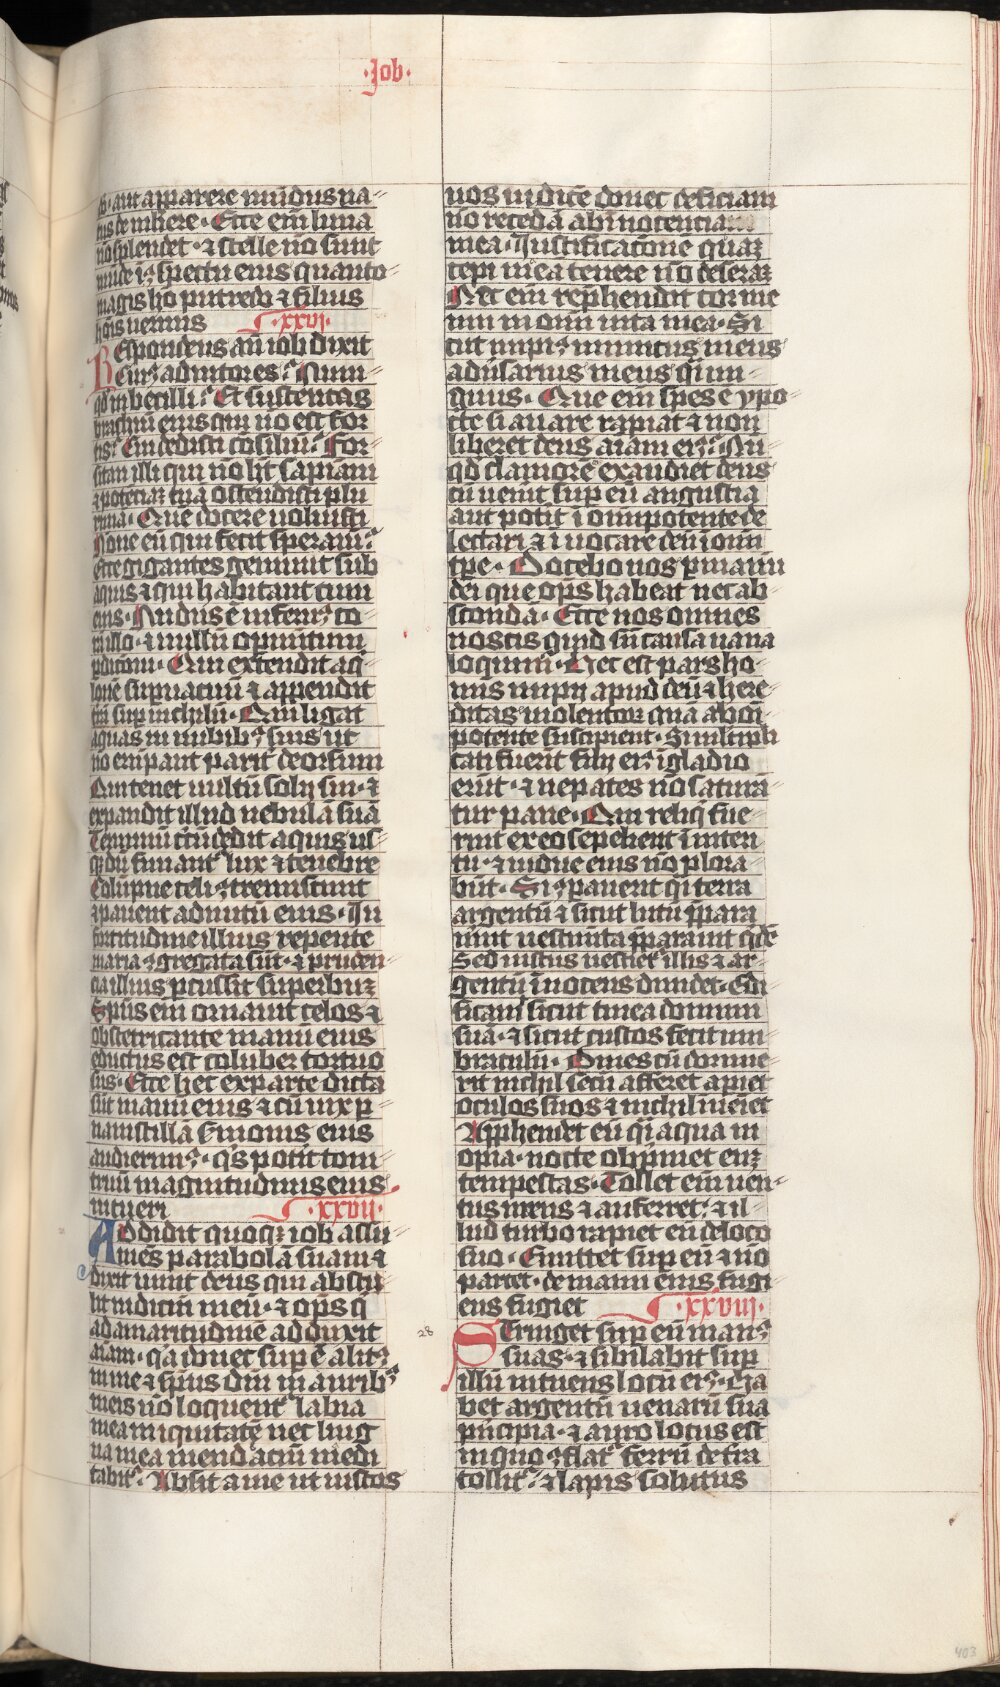 ·Job·
d̅s· aut apparere mu̅dus na⸗
tus de m̅lie̅re· Ecce em̅ luna
no̅ splendet· ⁊ stelle no̅ sunt
mu̅de i̅ ꝯspectu eius quanto⸗
magis ho̅ putredo ⁊ filius
ho̅is uermis ·xxvi·
REspondens au̅ iob dixit
Cuiꝰ adiutor es? Nu̅m⸗
qd̅ inbecilli? Et sustentas
brachiu̅ eius qui no̅ est for
tis? Cui dedisti co̅siliu̅? For
sitan illi qui no̅ h̅t sapiam̅
⁊ pote̅ciaꝫ tua̅ ostendisti plu
rima· Que̅ docere uoluisti
No̅ne eu̅ qui fecit speram̅?
Ecce gigantes gemunt sub
aquis ⁊ qui habitant cum
eis· Nudus e̅ infernꝰ co⸗
ra̅ illo· ⁊ nullu̅ op̅imentum
p̅ditioni· Qui extendit aq̅
lone̅ sup̅ uacuu̅ ⁊ appendit
t̅ra̅ sup̅ nichilu̅· Qui ligat
aquas in nubibꝰ suis ut
no̅ eru̅pant parit̅ deorsum
Qui tenet uultu̅ solij sui· ⁊
expandit illud nebula̅ sua̅
Terminu̅ circu̅dedit aquis us⸗
q̅ du̅ finiant̅ lux ⁊ tenebre
Colu̅pne celi ꝯtremiscunt
⁊ pauent ad nutu̅ eius· In
fortitudine illius repente
maria ꝯgregata su̅t· ⁊ pruden⸗
cia illius p̅cussit superbuꝫ
Sp̅us ei̅ ornauit celos ⁊
obstetricante manu̅ eius
eductus est coluber tortuo
sus· Ecce hec ex parte dicta
su̅t maru̅ eius ⁊ cu̅ uix p̅
ua̅m stilla̅ s̅monis eius
audierimꝰ· q̅s pot̅it toni⸗
truu̅ magnitudinis eius
intueri ·xxvii·
ADdidit quoqꝫ iob assu
me̅s parabola̅ suam ⁊
dixit uiuit deus qui abstu
lit iudiciu̅ meu̅· ⁊ op̅s q̅
ad amaritudine̅ adduxit
ai̅am· q̅a donec sup̅e̅ alitꝰ
in me ⁊ sp̅us d̅ni in auribꝰ
meis no̅ loquent̅ labia
mea iniquitate̅ nec ling
ua mea mendaciu̅ medi
tabit̅· Absit a me ut iustos
uos iudice̅ donec deficiam
no̅ receda̅ ab i̅nocencia
mea· Iustificac̅one quaꝫ
cepi mea̅ tenere no̅ deseraꝫ
Nec em̅ rep̅hendit cor me
um in omi̅ uita mea· Si
cut impiꝰ inimicus meus
adu̅sarius meus q̅i ini⸗
quus· Que em̅ spes e̅ ypo
c̅te si auare rapiat ⁊ non
liberet deus ai̅am eiꝰ? Nu̅
qd̅ clamore̅ exaudiet deus
cu̅ uenit sup̅ eu̅ angustia
aut pot̅it i̅ omi̅potente de
lectari ⁊ i̅uocare deu̅ i̅ om̅i
tp̅e· Docebo uos p̅ manu̅
dei que op̅s habeat nec ab
sconda̅· Ecce uos omnes
nostis quid su̅ causa uana
loquim̅· Hec est pars ho
minis impij apud deu̅ ⁊ here
ditas uiolentoꝝ qua̅ ab om̅i
potente suscipient· Si m̅ltipli
cati fuerit filij eiꝰ i̅ gladio
eru̅t· ⁊ nepotes no̅ satura
tur pane· Qui reliq̅ fue⸗
rint ex eo sepelient̅ i̅ interi
tu· ⁊ uidue eius no̅ plora
bu̅t· Si ꝯpauerit q̅i terra
argentu̅ ⁊ sicut lutu̅ p̅para
uerit uestim̅ta p̅parauit q̅de̅
Sed iustus uestiet̅ illis ⁊ ar⸗
gentu̅ i̅nocens diuidet· Edi
ficauit sicut tinea domum
sua̅· ⁊ sicut custos fecit um
braculu̅· Diues cu̅ dormie⸗
rit nichil secu̅ afferet ap̅iet
oculos suos ⁊ nichil i̅ueiet
App̅hendet eu̅ q̅i aqua in
opia· nocte obp̅imet euꝫ
tempestas· Tollet eum uen⸗
tus urens ⁊ auferret· ⁊ il⸗
lud turbo rapiet eu̅ de loco
suo· Emittet sup̅ eu̅ ⁊ no̅
parcet· de manu eius fugi
ens fugiet ·xxviij·
28
STringet sup̅ eu̅ manꝰ
suas· ⁊ sibilabit sup̅
illu̅ intuens locu̅ eiꝰ· Ha
bet argentu̅ uenaru̅ sua
p̅ncipia· ⁊ auro locus est
in quo ꝯflat̅· Ferru̅ de t̅ra
tollit̅· ⁊ lapis solutus
403